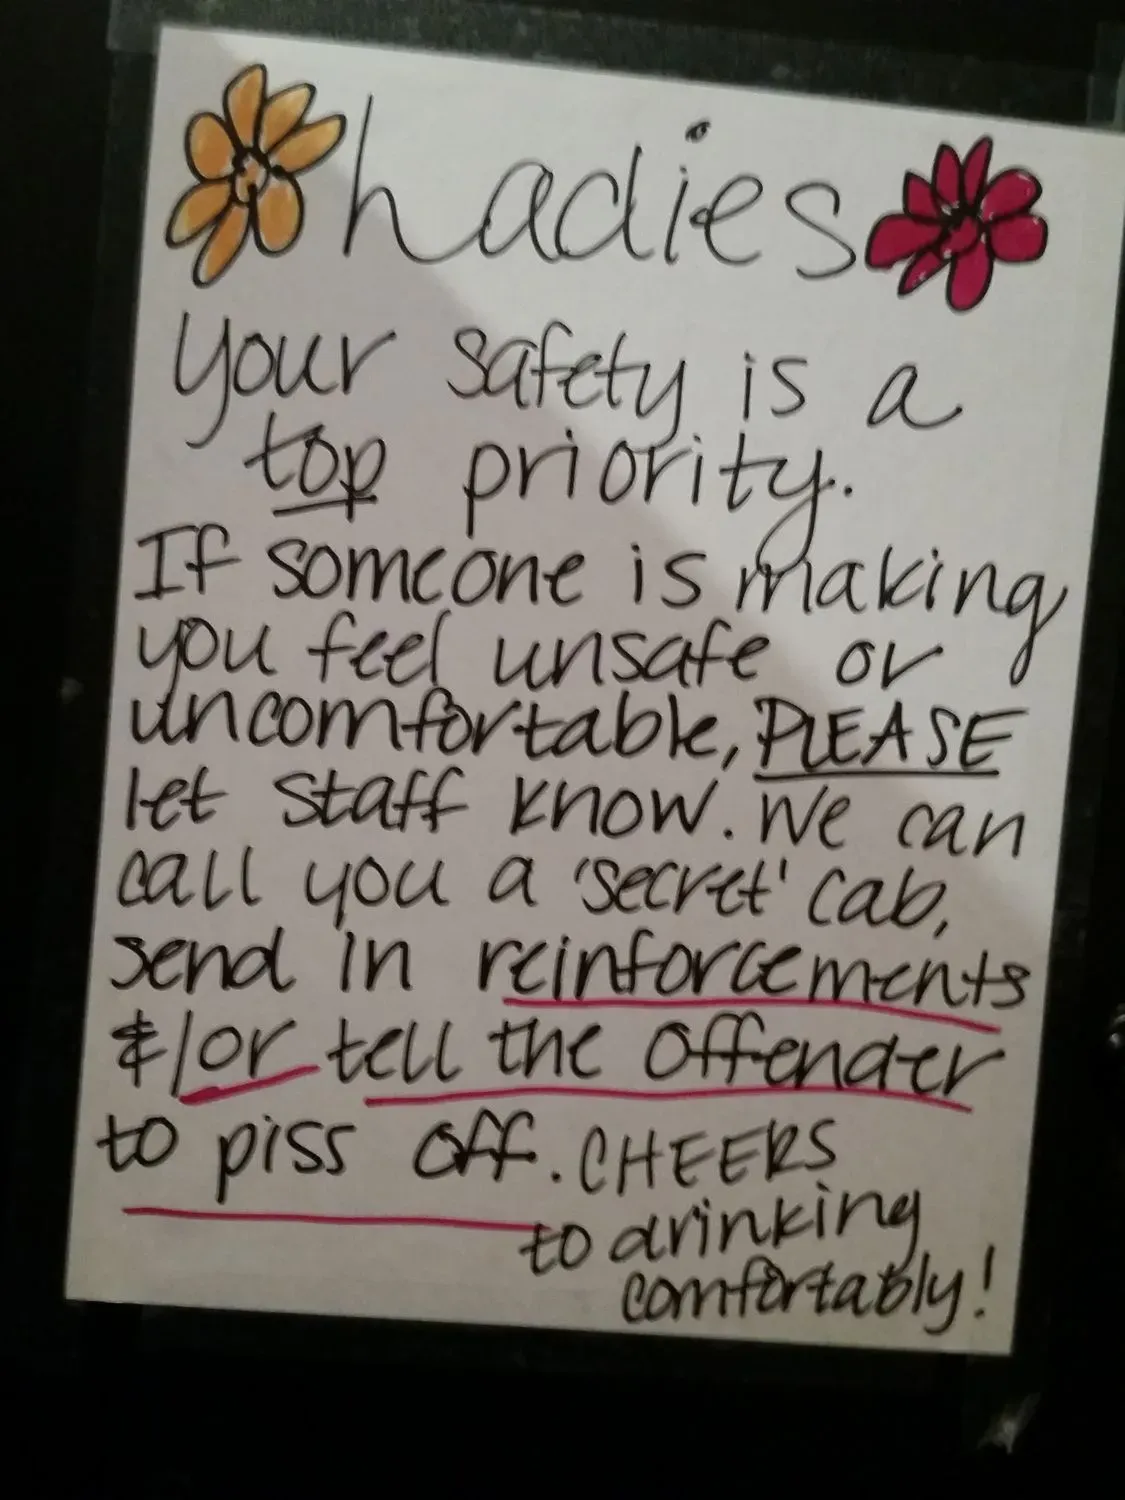 Ladies
your safety is a
top priority.
If someone is making
you feel unsafe or
uncomfortable, PLEASE
let staff know. We can
call you a 'secret' cab,
send in reinforcements
&/or tell the offender
to piss off. CHEERS
to drinking
comfortably!